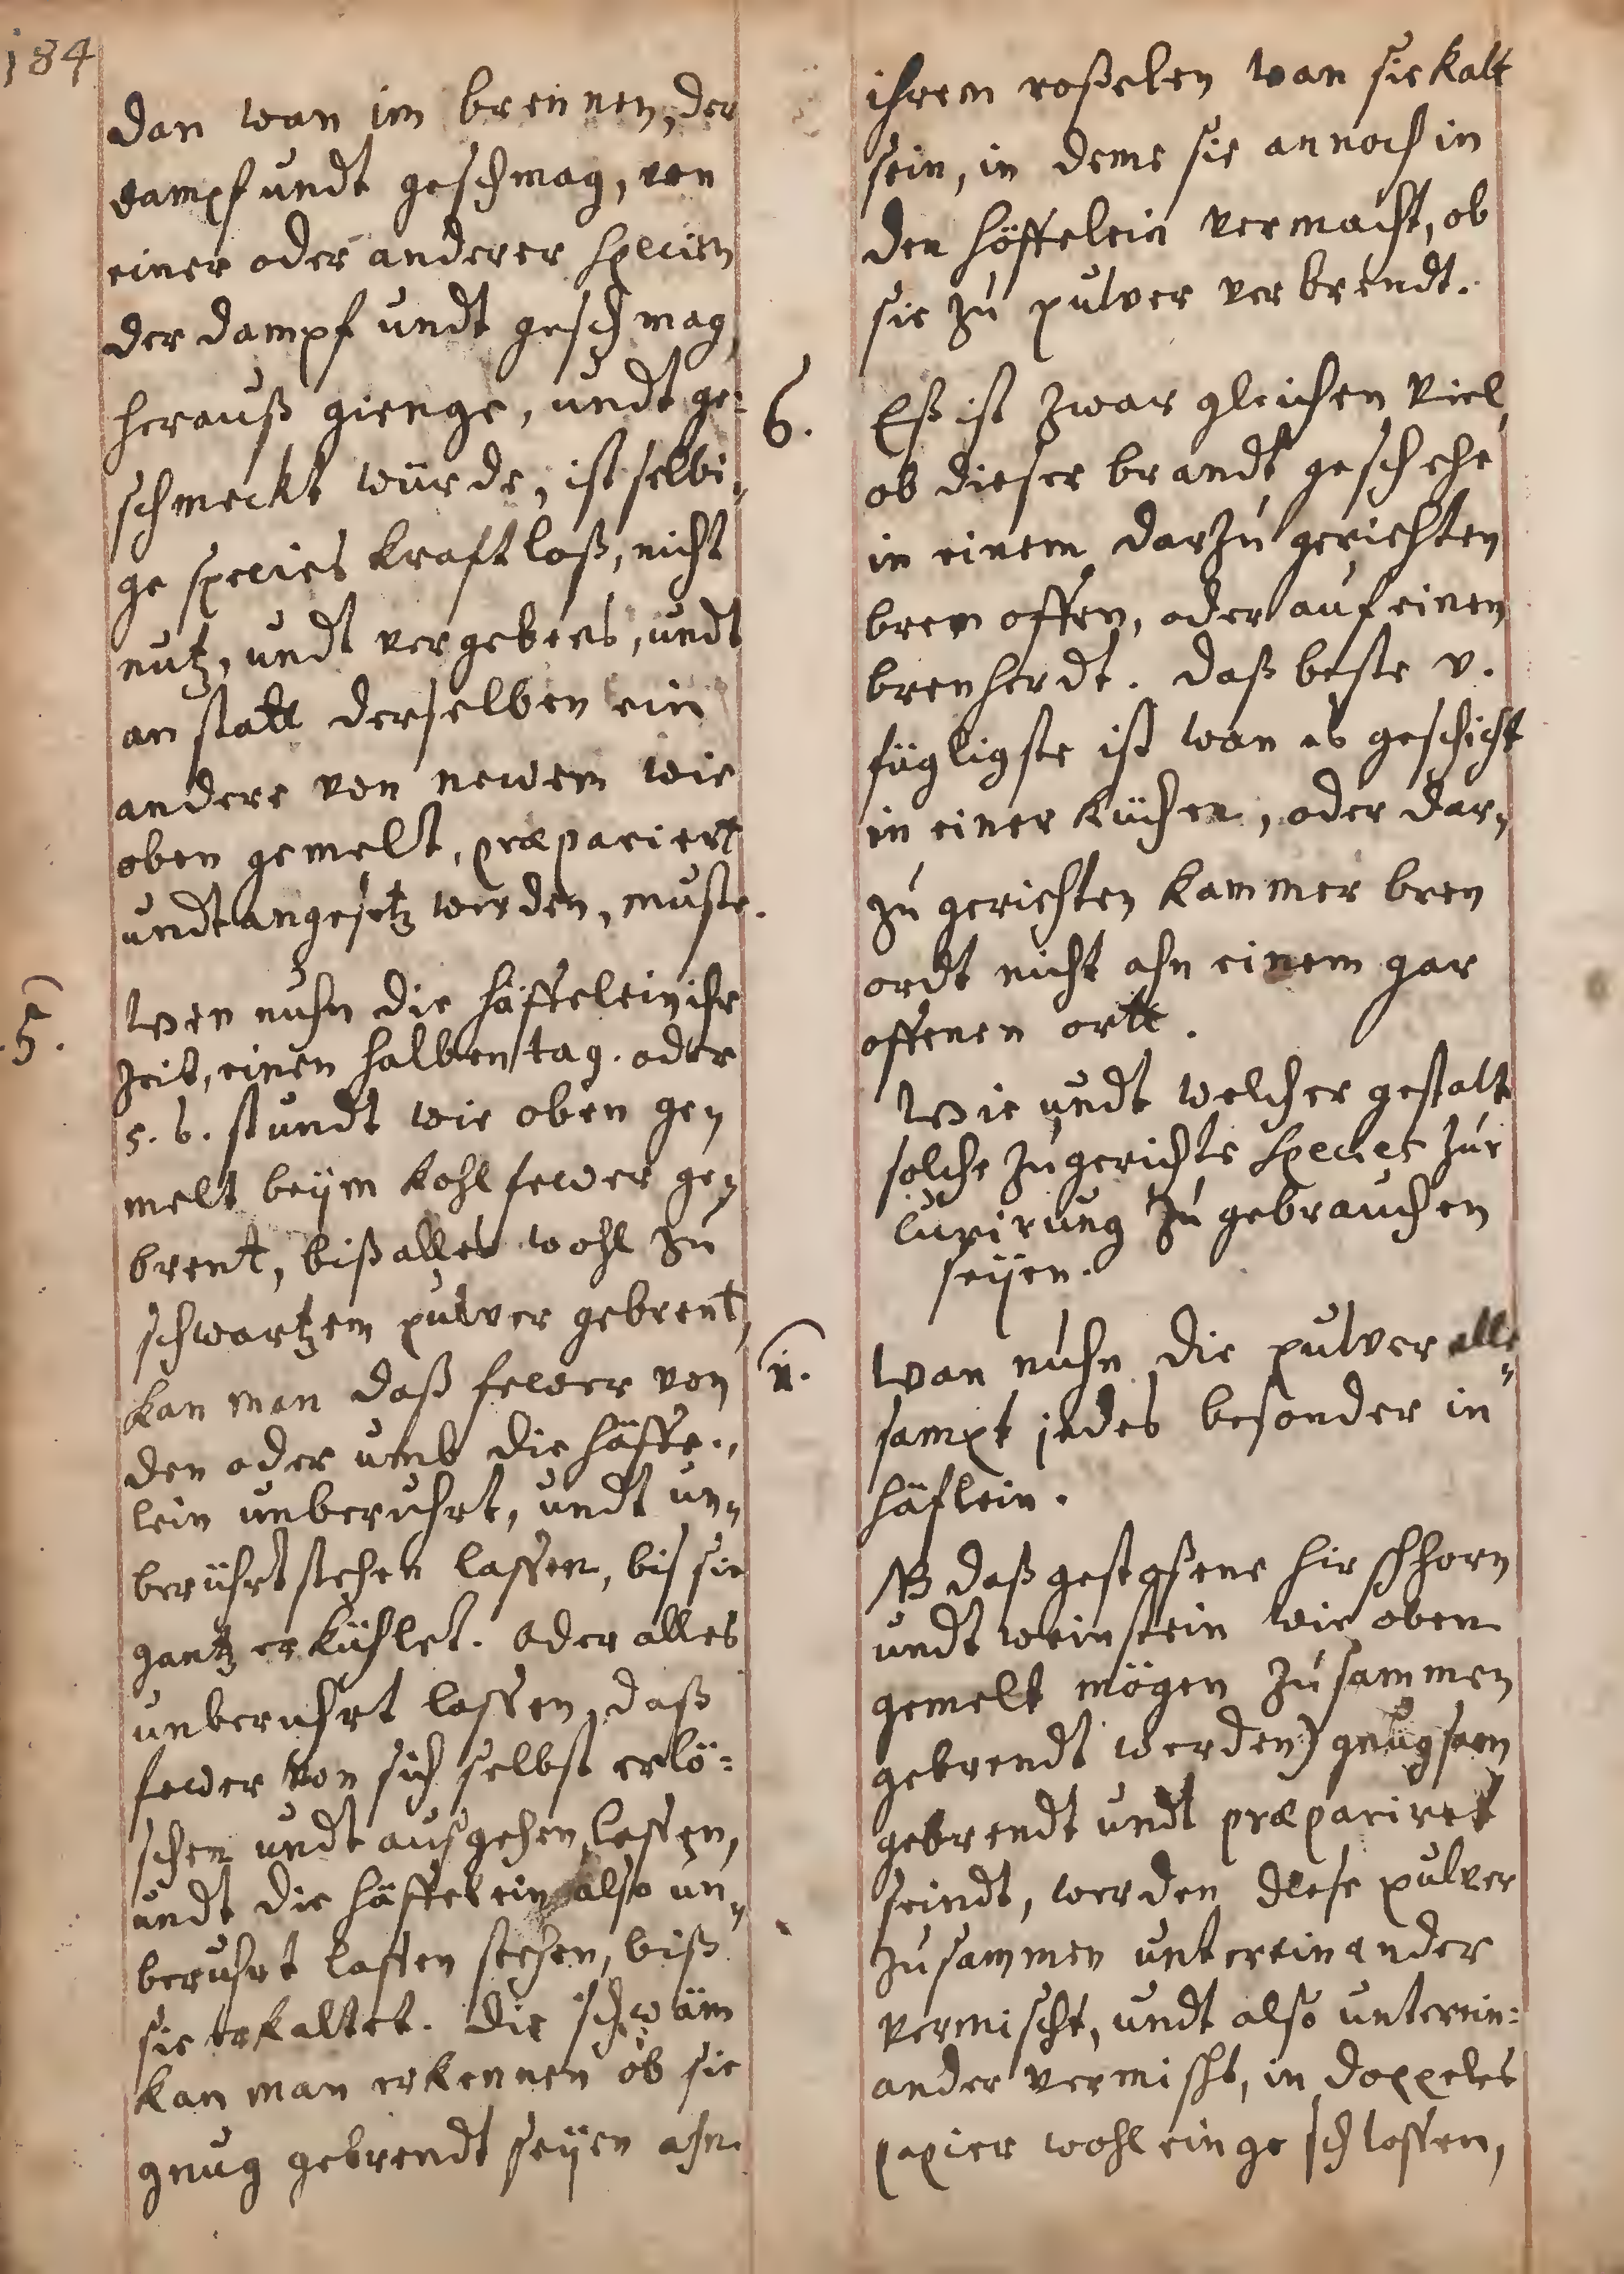 184
dan wan im brennen, der
dampf undt geschmag, von
einer oder anderer Specien
der dampf undt geschmag
herauß gienge, undt ge=
schmeckt würde, ist selbi„
ge species kraftloß, nicht
nutz, undt vergebens, undt
an statt derselben ein
andere von newem wie
oben gemelt, præpariert
undt angesetz werden, muste.
5.
Wen nuhn die häffelein ihr
zeit, einen halben tag. oder
5. 6. stundt wie oben ge„
melt beÿm kohl fewer ge„
brent, biß alles wohl zu
schwartzem pulver gebrent,
kan man daß fewer von
den oder umb die häffe„
lein unberuhrt, undt un„
berührt stehen lassen, bis sie
gantz erkühlet. oder alles
unberuhrt lassen, daß
fewer von sich selbst erlö=
schen undt außgehen lassen,
undt die häffelein also un„
beruhrt lassen stehen, biß
sie erkaltet. die schwäm
kan man erkennen ob sie
gnug gebrendt seÿen ahn
ihrem roßelen wan sie kalt
sein, in deme sie annoch in
den höffelein vermacht, ob
sie zu pulver verbrendt.
6.
Eß ist zwar gleichen viel,
ob dieser brandt geschehe
in einem darzu gerichten
bren offen, oder auf einen
brenherdt. daß beste v.
fügligste ist wan es geschicht
in einer küchen, oder dar„
zu gerichten kammer bren
ordt nicht ahn einem gar
offenen ortt.
Wie undt welcher gestalt
solche zugerichte Species zur
Curirung zu gebrauchen
seÿen.
1.
Wan nuhn die pulver alle„
sampt jedes besonder in
häflein.
NB daß gestoßene hirschhorn
undt weinstein wie oben
gemelt mögen zusammen
gebrendt werden) gnugsam
gebrendt undt præpariret
seindt, werden diese pulver
zusammen untereinander
vermischt, undt also unterein=
ander vermischt, in doppeles
papier wohl eingeschlossen,